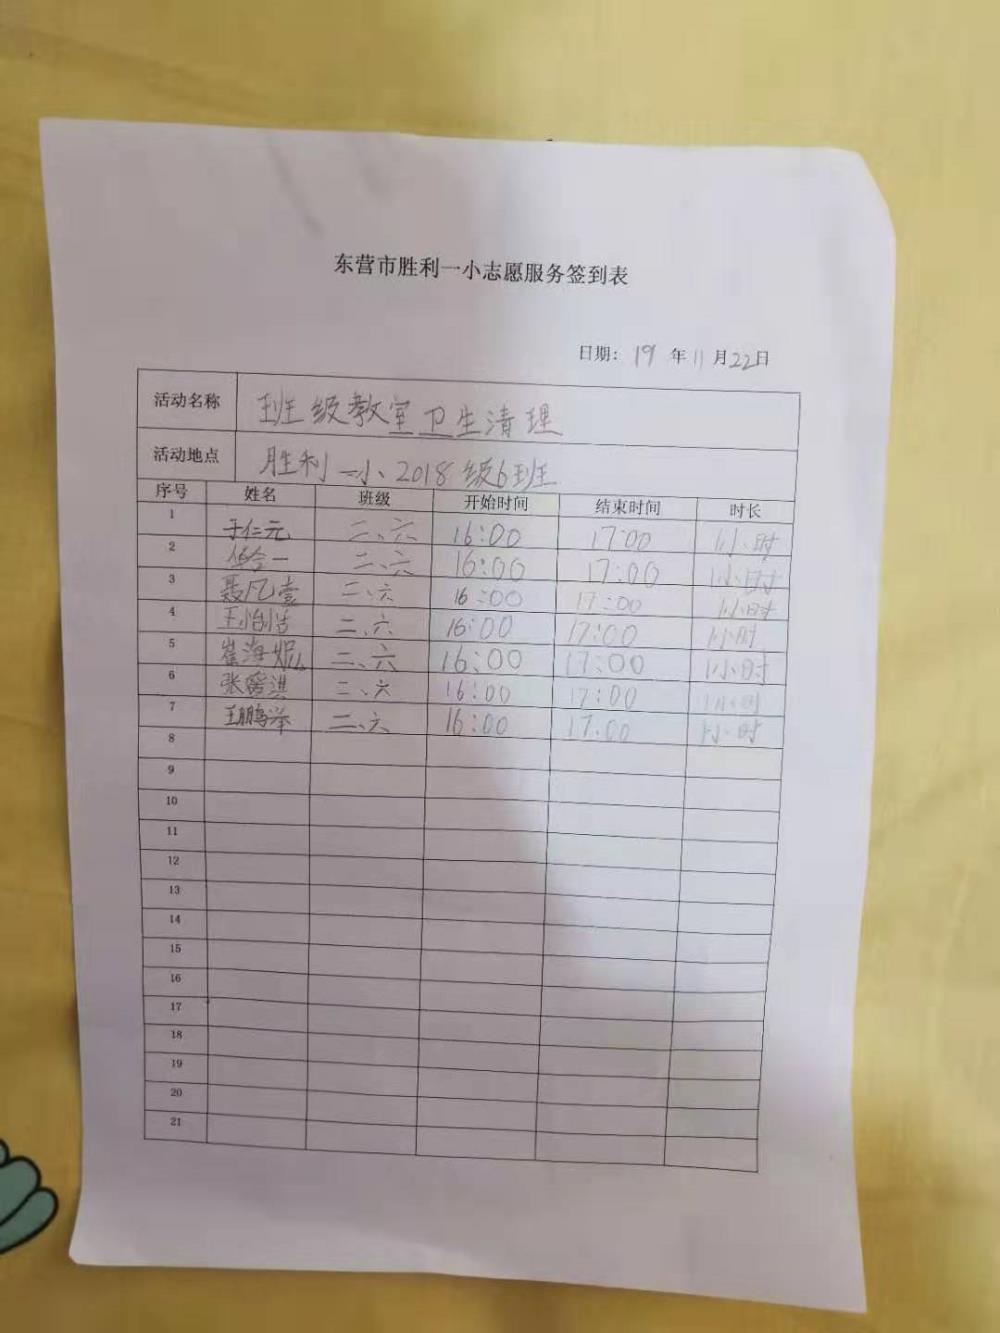 东营市胜利一小志愿服务签到表
日期：19年11月22日
活动名称 班级教室卫生清理
活动地点 胜利一小、2018级6班
序号 姓名 班级 开始时间 结束时间 时长
1 于仁元 二、六 16:00 17:00 1小时
2 合一 二、六 16:00 17:00 1小时
3 聂凡壹 二、六 16:00 17:00 1小时
4 王怡洁 二、六 16:00 17:00 1小时
5 崔海妮 二、六 16:00 17:00 1小时
6 张 二、六 16:00 17:00 1小时
7 王鹏泽 二、六 16:00 17:00 1小时
8
9
10
11
12
13
14
15
16
17
18
19
20
21